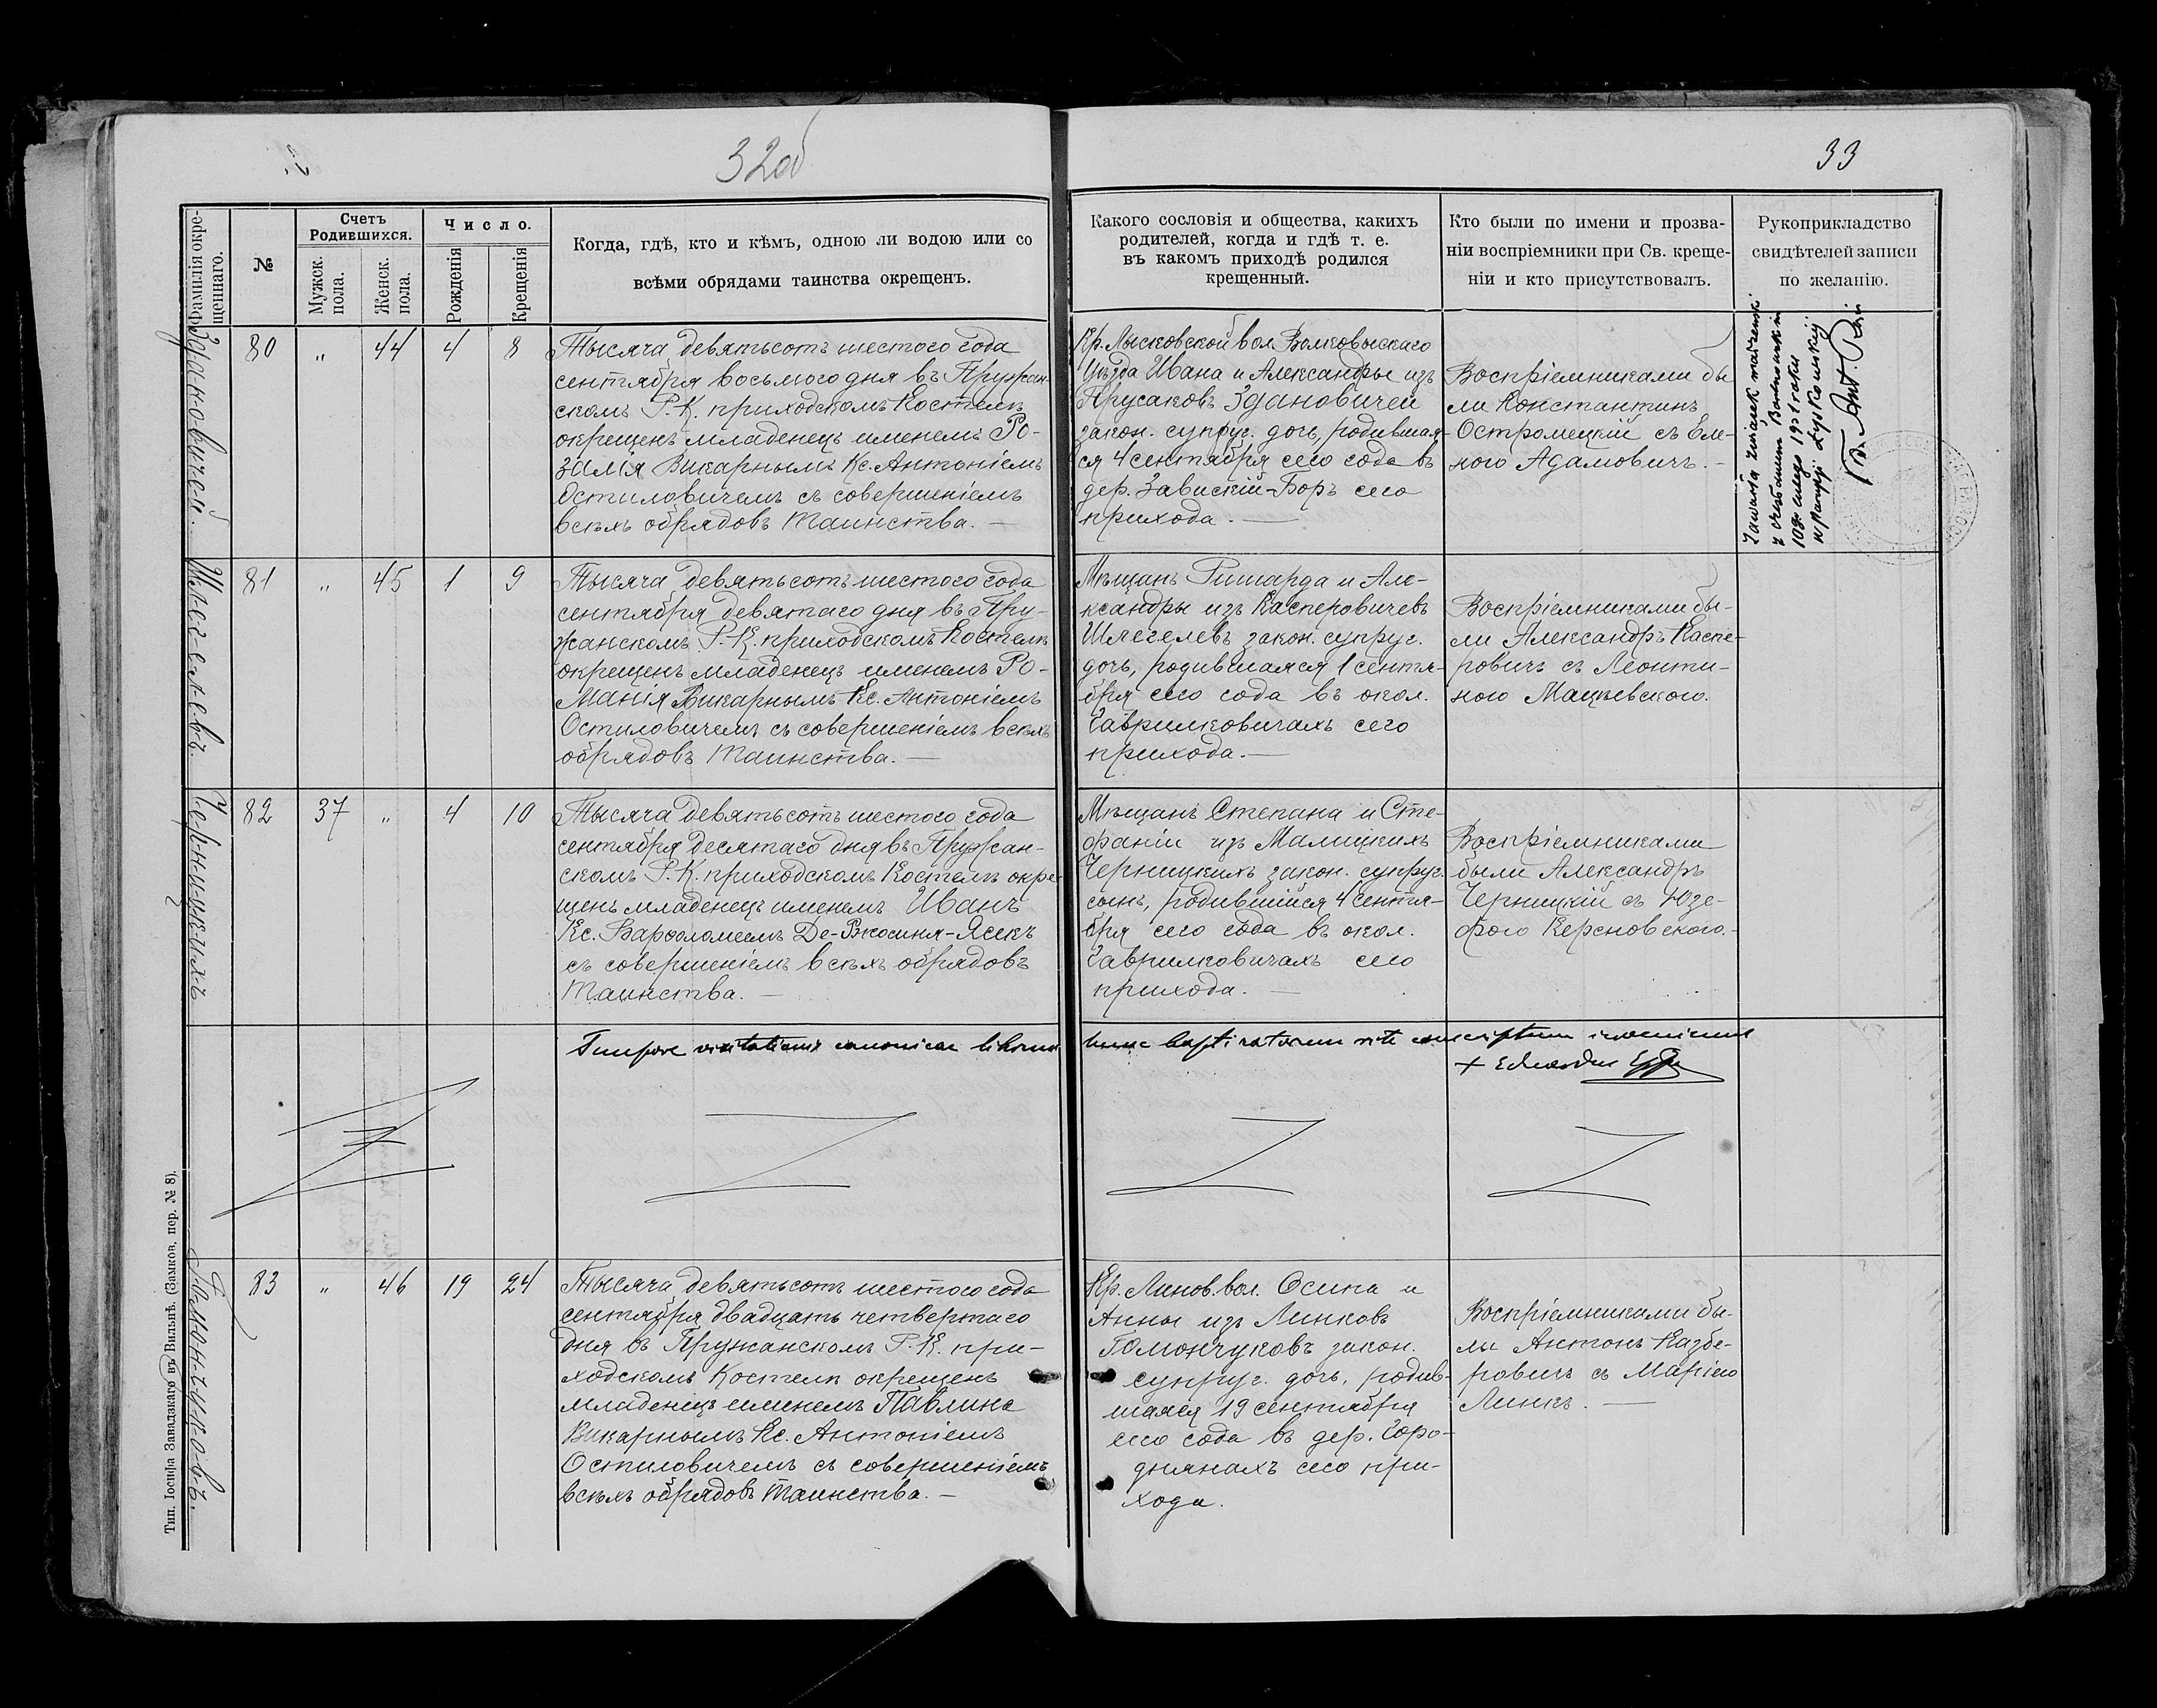 32об
33
Фамилія окре-
щеннаго.
№
Счетъ
Родившихся.
Мужск.
пола.
Женск.
пола.
Число.
Рожденія
Крещенія
Когда, гдѣ, кто и кѣмъ, одною ли водою или со
всѣми обрядами таинства окрещенъ.
Какого сословія и общества, какихъ
родителей, когда и гдѣ т. е.
въ какомъ приходѣ родился
крещенный.
Кто были по имени и прозва-
ніи воспріемники при Св. креще-
ніи и кто присутствовалъ.
Рукоприкладство
свидѣтелей записи
по желанію.
Здановичей.
80 „ 44 4 8
Тысяча девятьсотъ шестого года
сентября восьмого дня въ Пружан-
скомъ Р.К. приходскомъ Костелѣ
окрещенъ младенецъ именемъ Ро-
залія Викарнымъ Кс. Антоніемъ
Остиловичемъ съ совершеніемъ
всѣхъ обрядовъ таинства. —
Кр. Лысковской вол. Волковыскаго
Уѣзда Ивана и Александры изъ
Прусаковъ Здановичей
закон. супруг. дочь, родившая-
ся 4 сентября сего года въ
дер. Завискій-Боръ сего
прихода. —
Воспріемниками бы
ли Константинъ
Остромецкій съ Еле-
ною Адамовичъ. —
Zawarła związek małżeński
z Czesławem
10go lutego 1931 roku
w parafji Łyskowskiej
Шлегелевъ.
81 „ 45 1 9
Тысяча девятьсотъ шестого года
сентября девятаго дня въ Пру-
жанскомъ Р.К. приходскомъ Костелѣ
окрещенъ младенецъ именемъ Ро-
манія Викарнымъ Кс. Антоніемъ
Остиловичемъ съ совершеніемъ всѣхъ
обрядовъ таинства. —
Мѣщанъ Ришарда и Але-
ксандры изъ Касперовичевъ
Шлегелевъ закон. супруг.
дочь, родившаяся 1 сентя-
бря сего года въ окол.
Гаврилковичахъ сего
прихода. —
Воспріемниками бы-
ли Александръ Каспе-
ровичъ съ Леонти-
ною Мацѣевскою.
Черницкихъ
82 37 „ 4 10
Тысяча девятьсотъ шестого года
сентября десятаго дня въ Пружан-
скомъ Р.К. приходскомъ Костелѣ окре-
щенъ младенецъ именемъ Иванъ
Кс. Варѳоломеемъ Де-Ркосиня-Ясекъ
съ совершеніемъ всѣхъ обрядовъ
таинства. —
Мѣщанъ Степана и Сте-
фаніи изъ Малицкихъ
Черницкихъ закон. супруг.
сынъ, родившійся 4 сентя-
бря сего года въ окол.
Гаврилковичахъ сего
прихода. —
Воспріемниками
были Александръ
Черницкій съ Юзе-
фою Керсновскою.
Tempore visitationis canonicae librum hunc baptizatorum rite conscriptum invenimus
+ Eduardus
Гомончуковъ.
83 „ 46 19 24
Тысяча девятьсотъ шестого года
сентября двадцать четвертаго
дня въ Пружанскомъ Р.К. при-
ходскомъ Костелѣ окрещенъ
младенецъ именемъ Павлина
Викарнымъ Кс. Антоніемъ
Остиловичемъ съ совершеніемъ
всѣхъ обрядовъ таинства. —
Кр. Линов. вол. Осипа и
Анны изъ Линковъ
Гомончуковъ закон.
супруг. дочь, родив-
шаяся 19 сентября
сего года въ дер. Горо-
днянахъ сего при-
хода.
Воспріемниками бы-
лы Антонъ Казбе-
ровичъ съ Маріею
Линкъ. —
Тип. Іосифа Завадзкаго въ Вильнѣ. (Замков. пер. № 8).